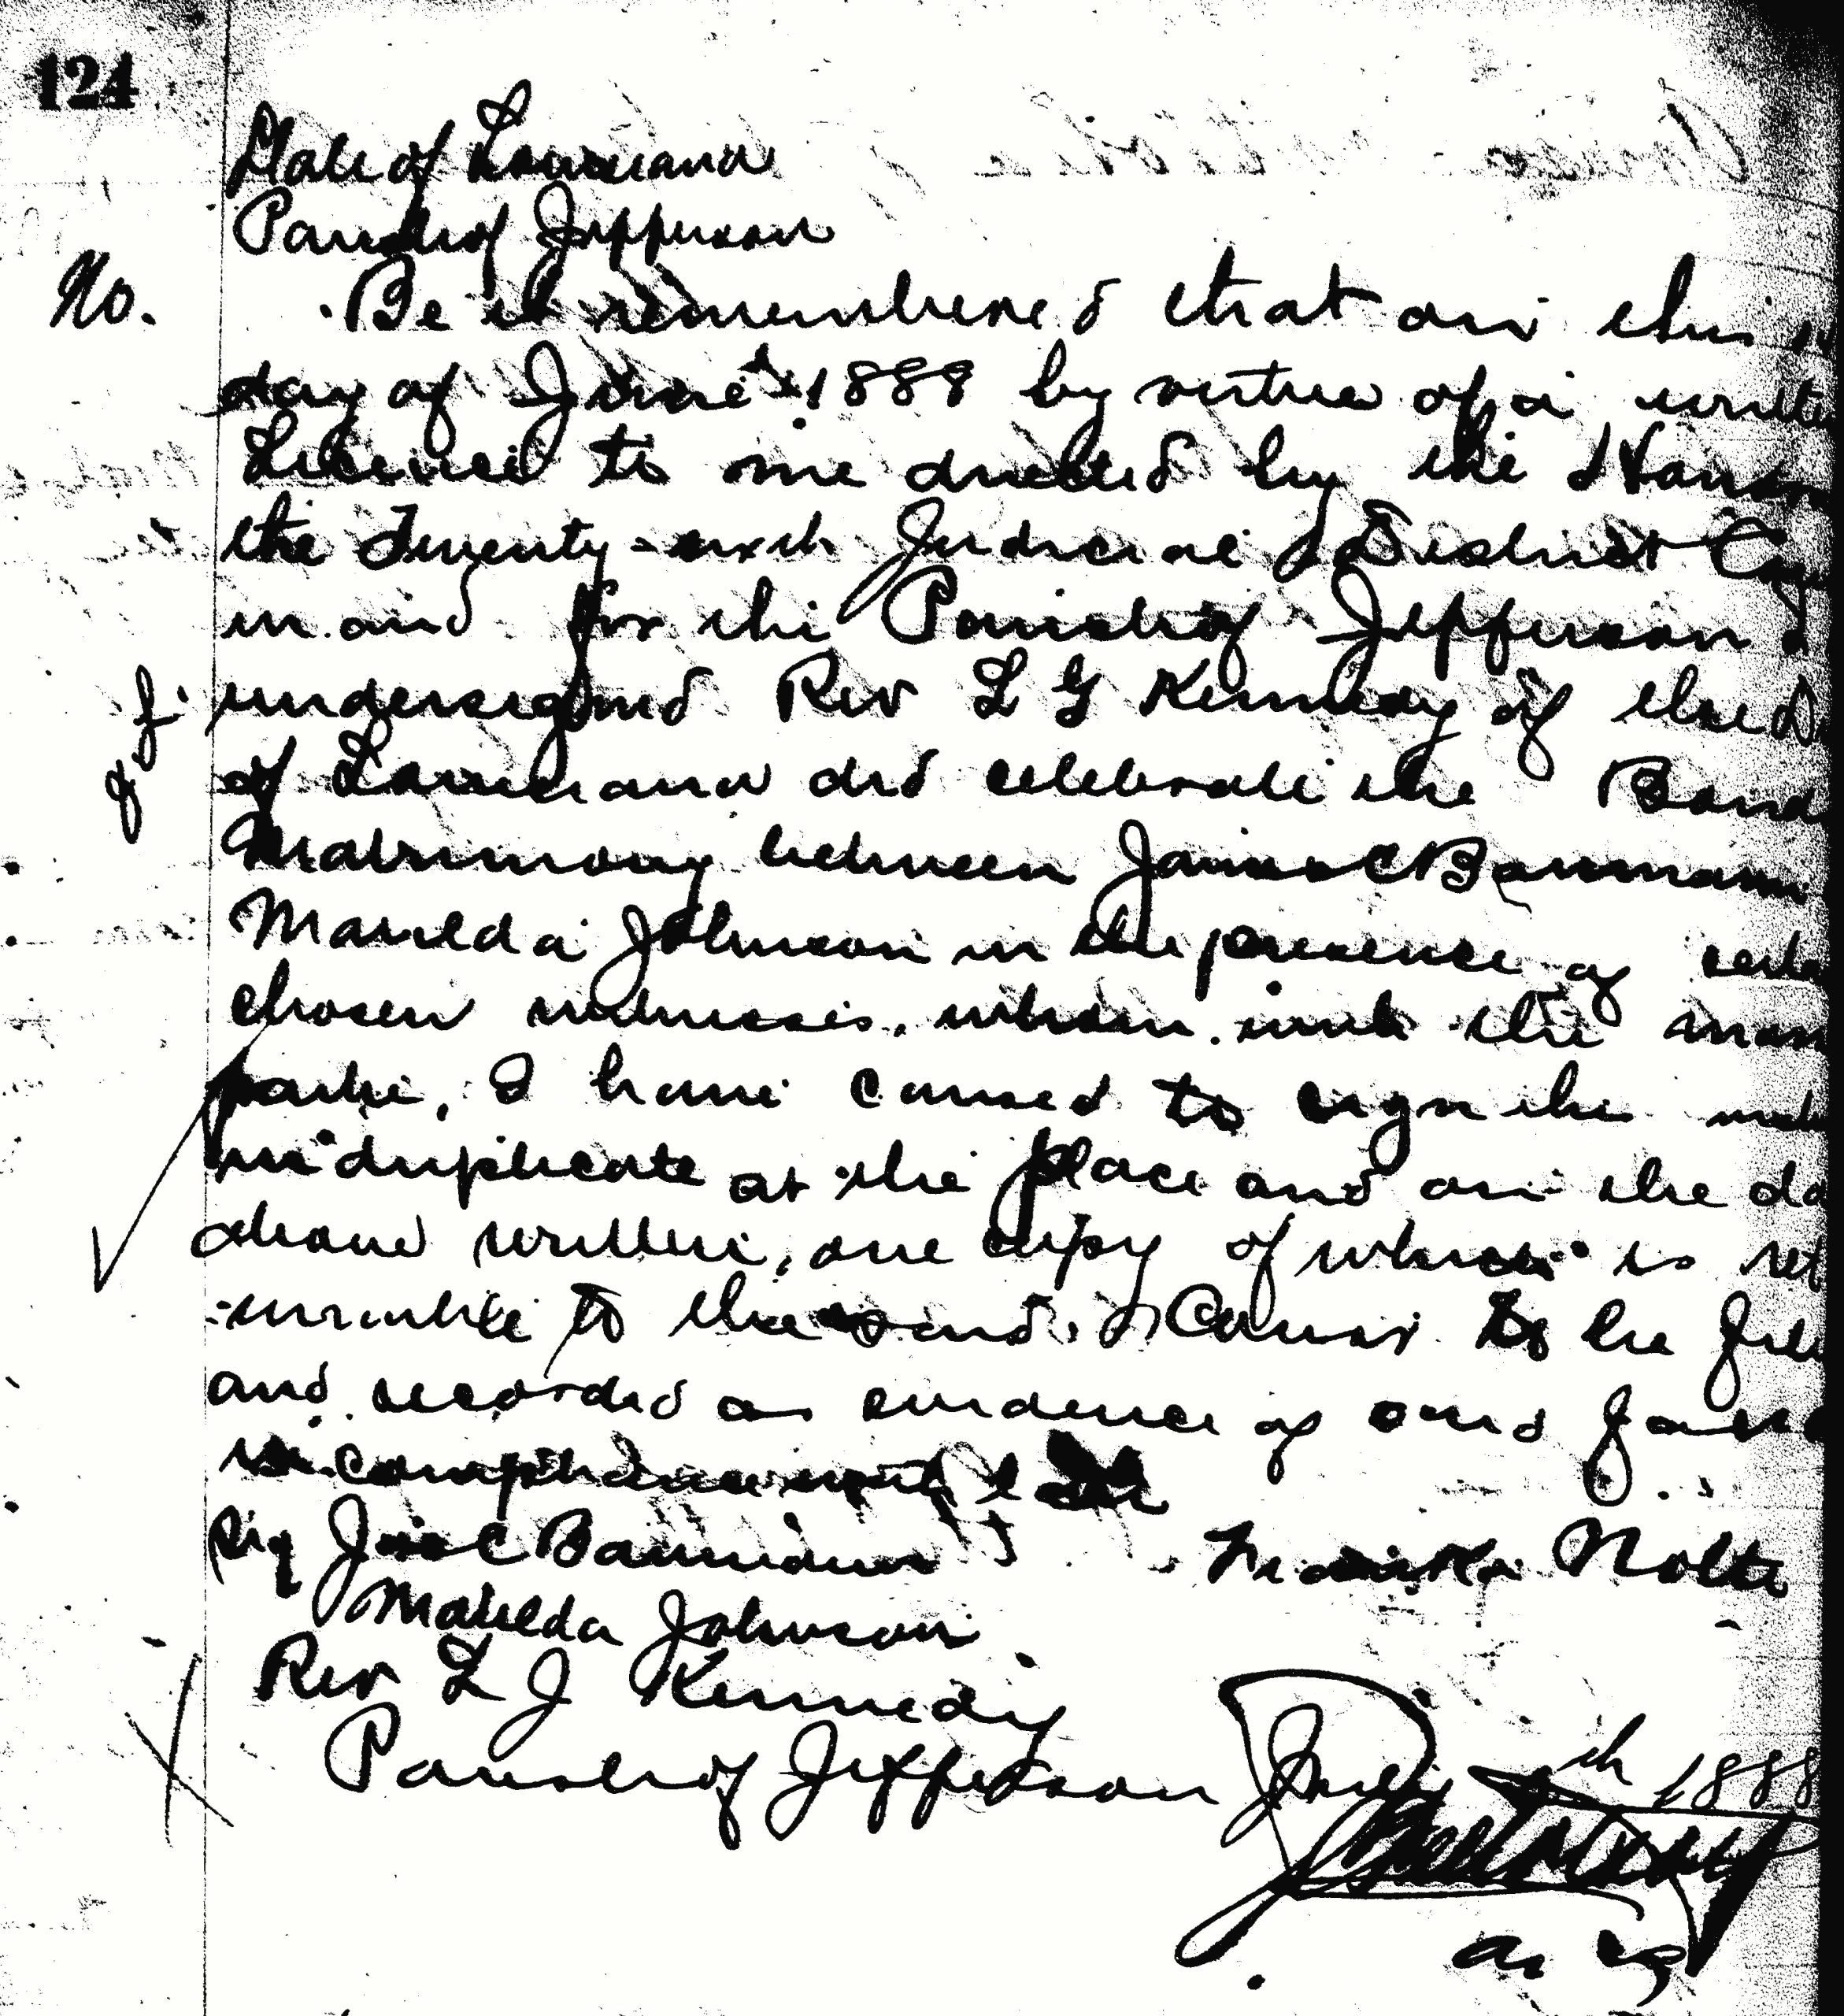 124
State of Louisiana
Parish of Jefferson
No. Be it remembered that on this
day of June 1888 by virtue of a written
License to me directed by the Honor
the Twenty-sixth Judicial District Cou
in and for the Parish of Jefferson I
undersigned Rev L G Kennedy of the
of Louisiana did celebrate the Band
Matrimony between James C Baumann
Matilda Johnson in the presence of certa
chosen witnesses, whom with the
partie, I have caused to sign the
in duplicate at the place and on the da
above written, one copy of which is ret
urnable to the said Court to be file
and recorded as evidence of said
in compliance with
Sig Jas C Baumann Nolte
Matilda Johnson
Rev L J Kennedy
Parish of Jefferson th 1888